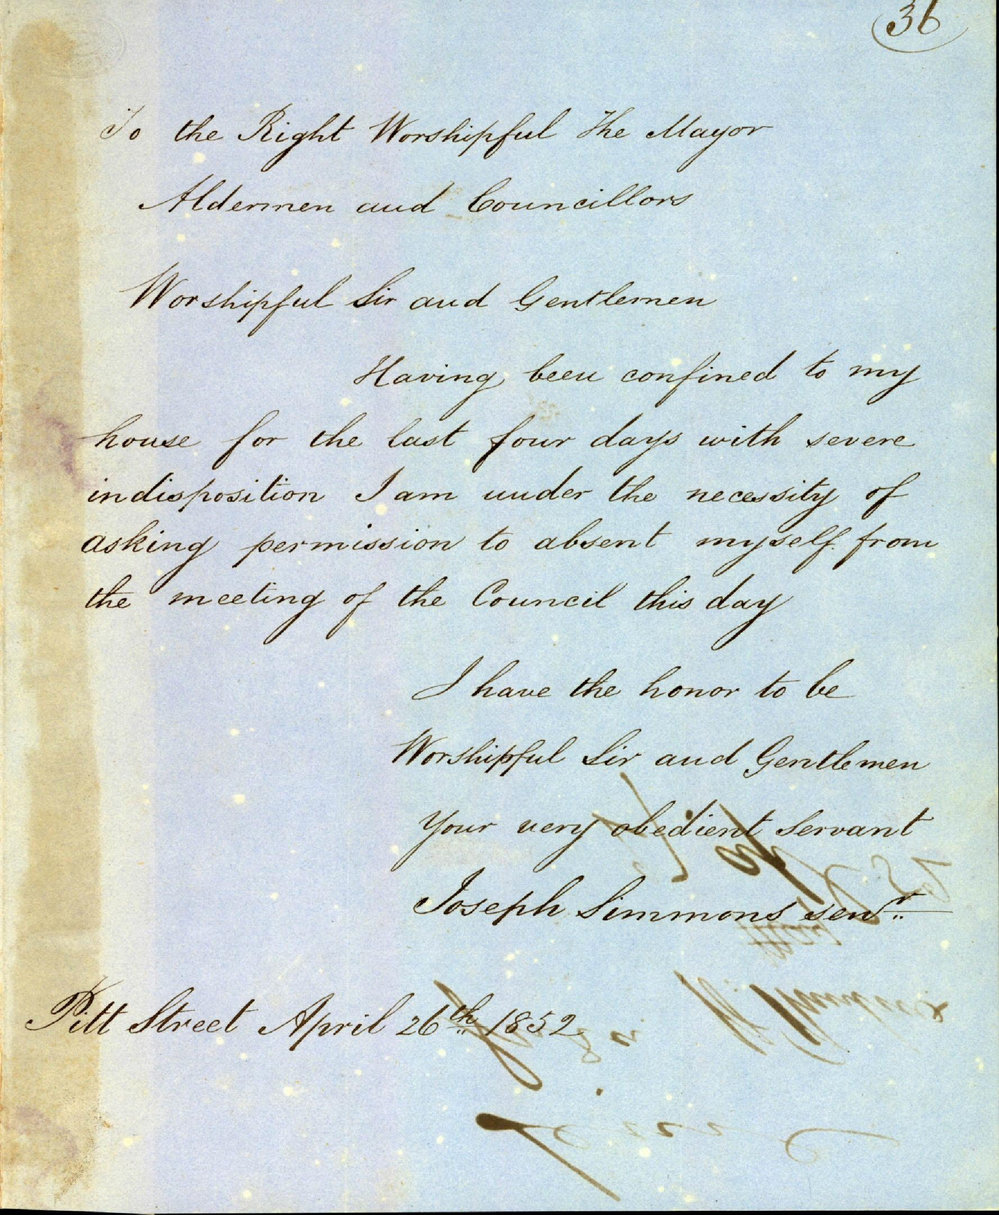 36
To the Right Worshipful The Mayor
Aldermen and Councillors
Worshipful Sir and Gentlemen
Having been confined to my
house for the last four days with severe
indisposition I am under the necessity of
asking permission to absent myself from
the meeting of the Council this day
I have the honor to be
Worshipful Sir and Gentlemen
Your very obedient servant
Joseph Simmons senr.
Pitt Street April 26th 1852